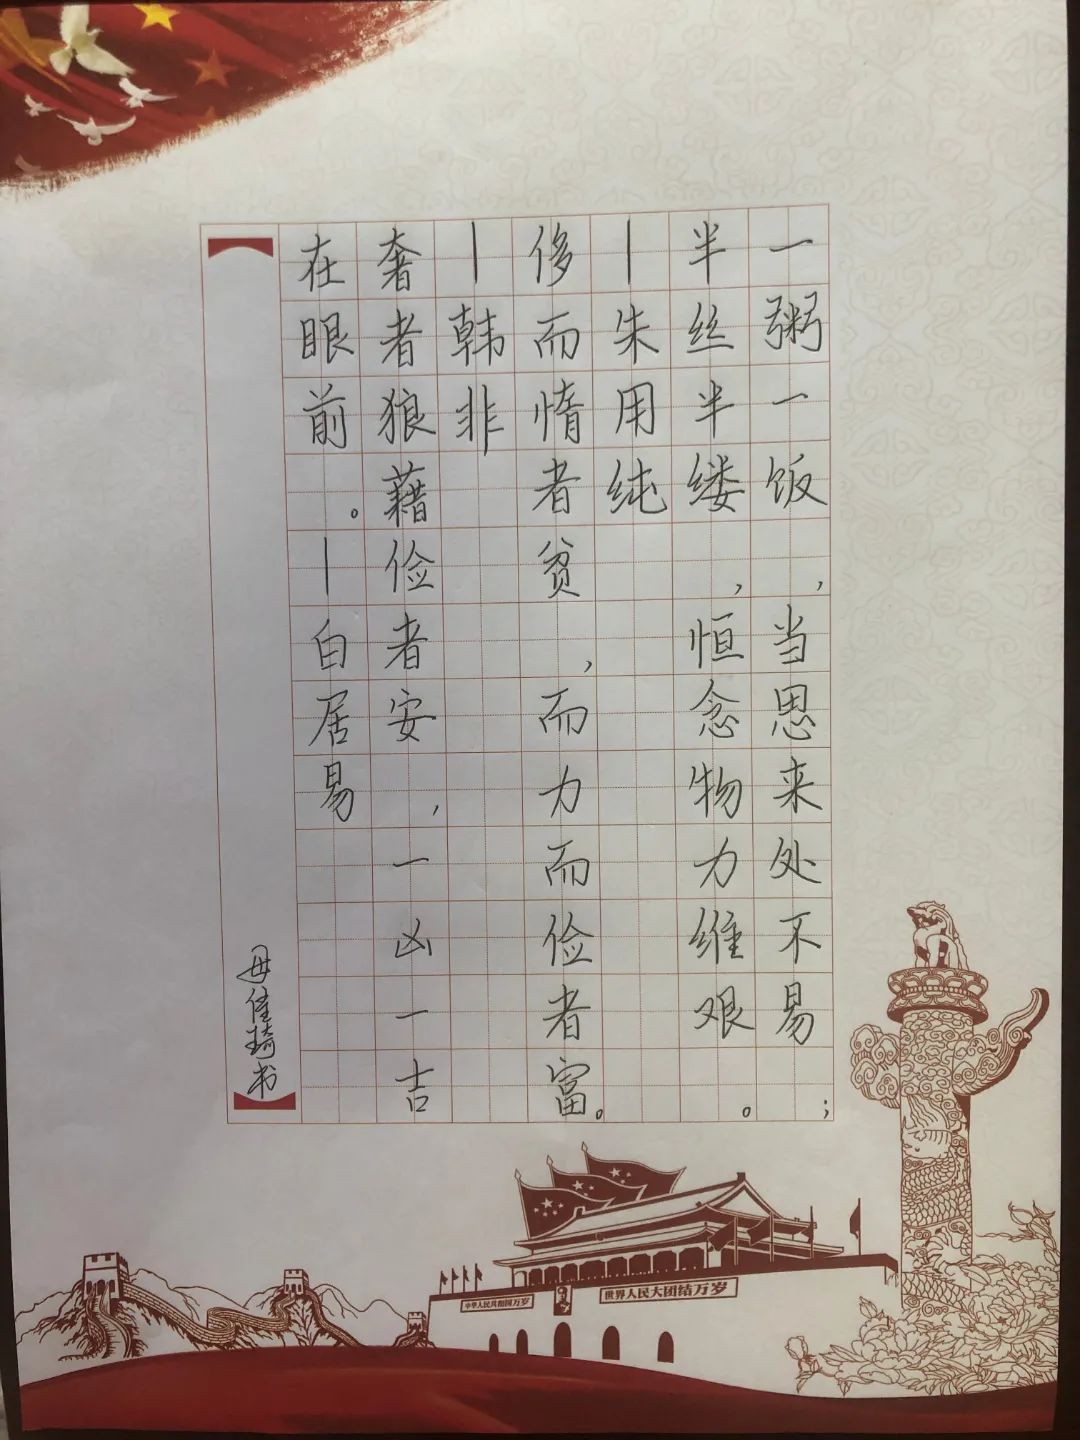 一粥一饭，当思来处不易；
半丝半缕，恒念物力维艰。
—朱用纯
侈而惰者贫，而力而俭者富。
—韩非
奢者狼藉俭者安，一凶一吉
在眼前。—白居易
母佳琦书
中华人民共和国万岁
世界人民大团结万岁